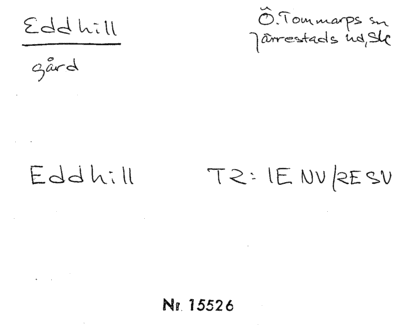 Eddhill
gård
Ö. Tommarps sn
Järrestads hd, Sk
Eddhill TR: 1E NV/2E SV
Nr 15526